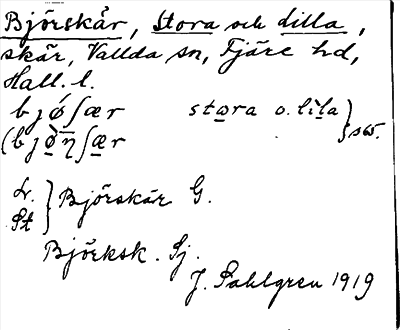 Björskär, Stora och Lilla,
skär, Vallda sn, Fjäre hd,
Hall. l.
bjǿʃær stɷra o. lila } 1965.
(bjø̀ŋʃær
Lr. St } Björskär G.
Björksk. Sj.
J. Sahlgren 1919